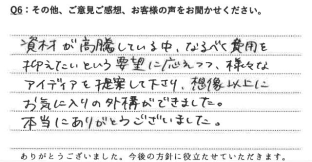 Q6：その他、ご意見ご感想、お客様の声をお聞かせください。
資材が高騰している中、なるべく費用を
抑えたいという要望に応えつつ、様々な
アイディアを提案して下さり、想像以上に
お気に入りの外構ができました。
本当にありがとうございました。
ありがとうございました。今後の方針に役立たせていただきます。